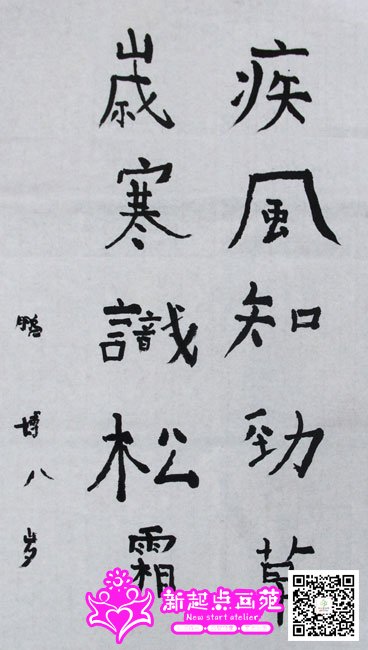 疾風知勁草
歳寒識松霜
鵬博八岁
新起点画苑
New start atelier